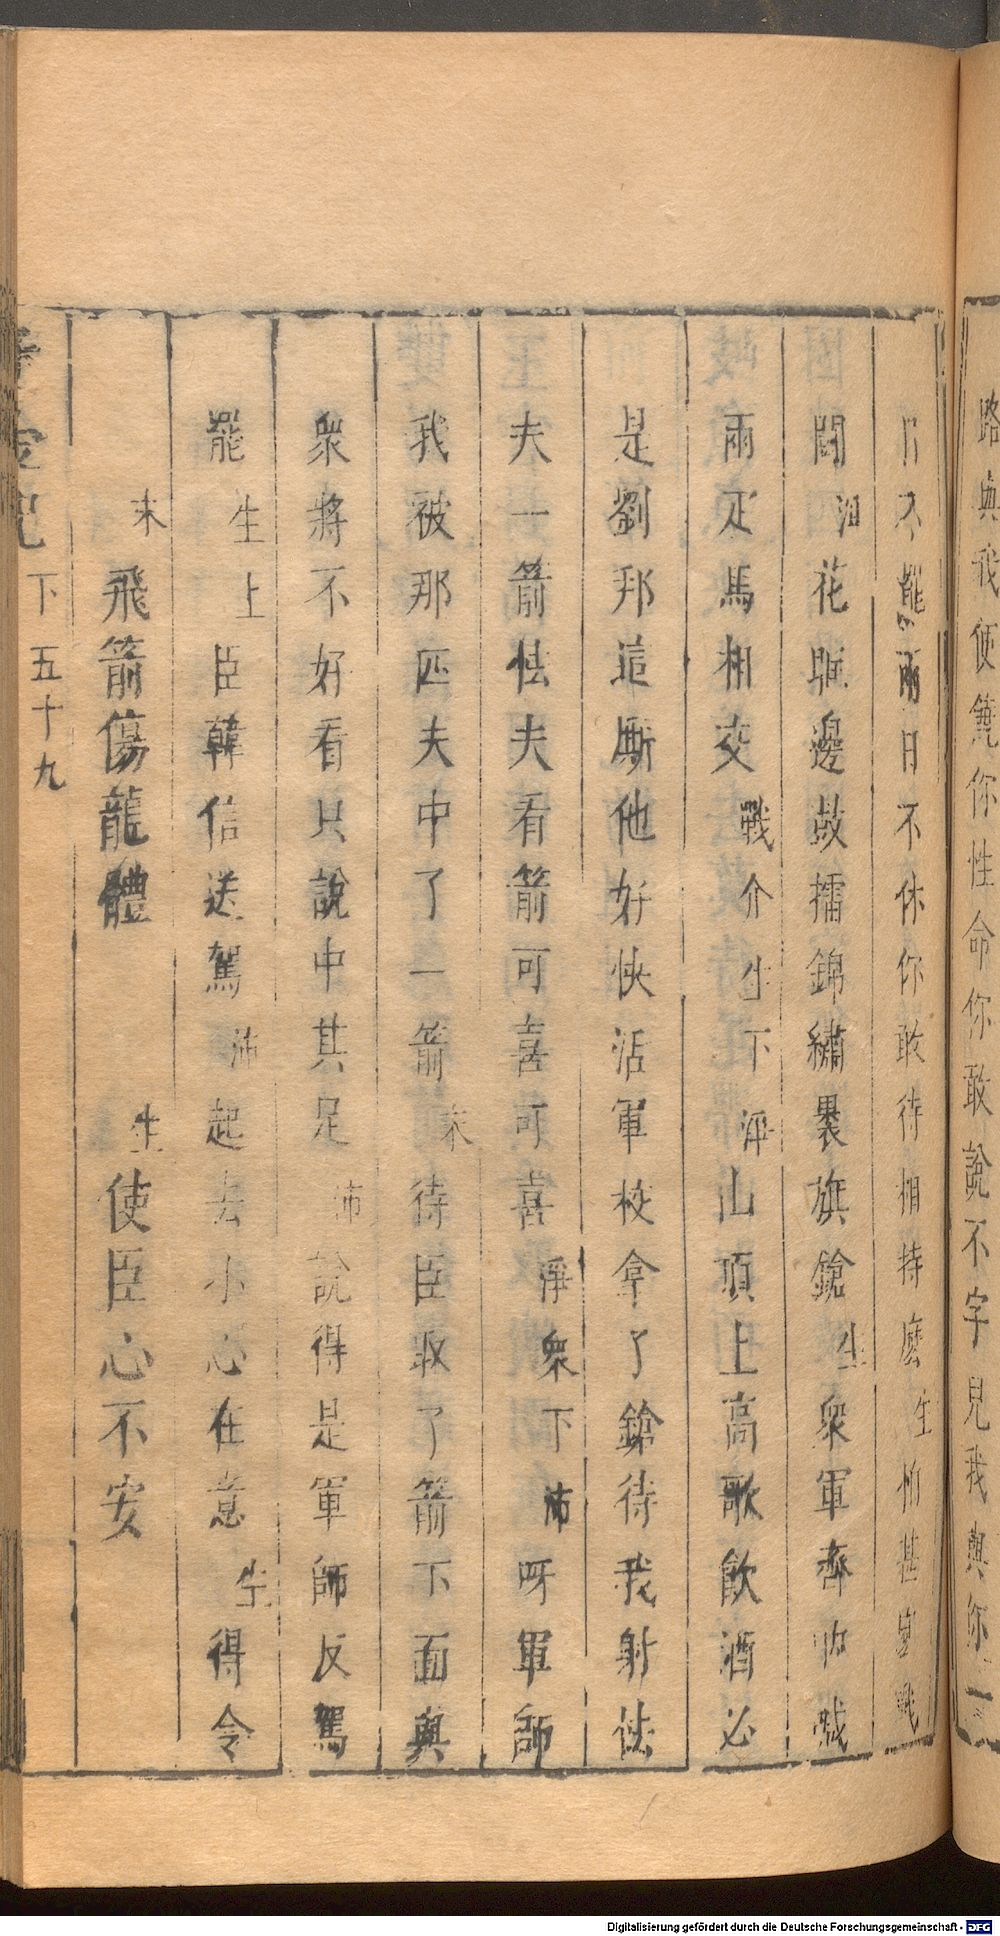 路與我便䇓你性命你敢說不字兒我與你一
日不罷兩日不休你敢待相持麽生怕甚廝戰
鬪淨花腔邊鼓擂錦繡裹旗鎗生衆軍齊吶喊
兩疋馬相交戰介生下淨山頂上高歌飲酒必
是劉邦這厮他好快活軍校拿了鎗待我射怯
夫一箭怯夫看箭可喜可喜淨衆下沛呀軍師
我被那匹夫中了一箭末待臣取了箭下面與
衆將不好看只說中其足沛說得是軍師反駕
罷生上臣韓信送駕沛起去小心在意生得令
末飛箭傷龍體　生使臣心不安
千金記 下 五十九
Digitalisierung gefördert durch die Deutsche Forschungsgemeinschaft - DFG